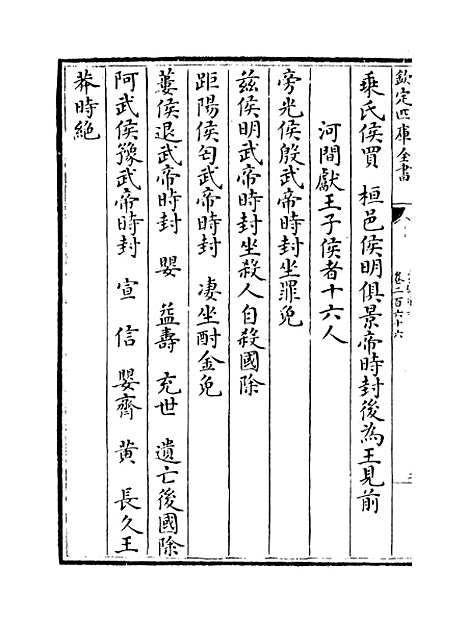 欽定四庫全書
卷二百六十六
乘氏侯買　桓邑侯明俱景帝時封後為王見前
河間獻王子侯者十六人
旁光侯殷武帝時封坐罪免
兹侯明武帝時封坐殺人自殺國除
距陽侯匄武帝時封　凄坐酎金免
蔞侯退武帝時封　嬰　益壽　充世　遺亡後國除
阿武侯豫武帝時封　宣　信　嬰齊　黄　長久王
莽時絶